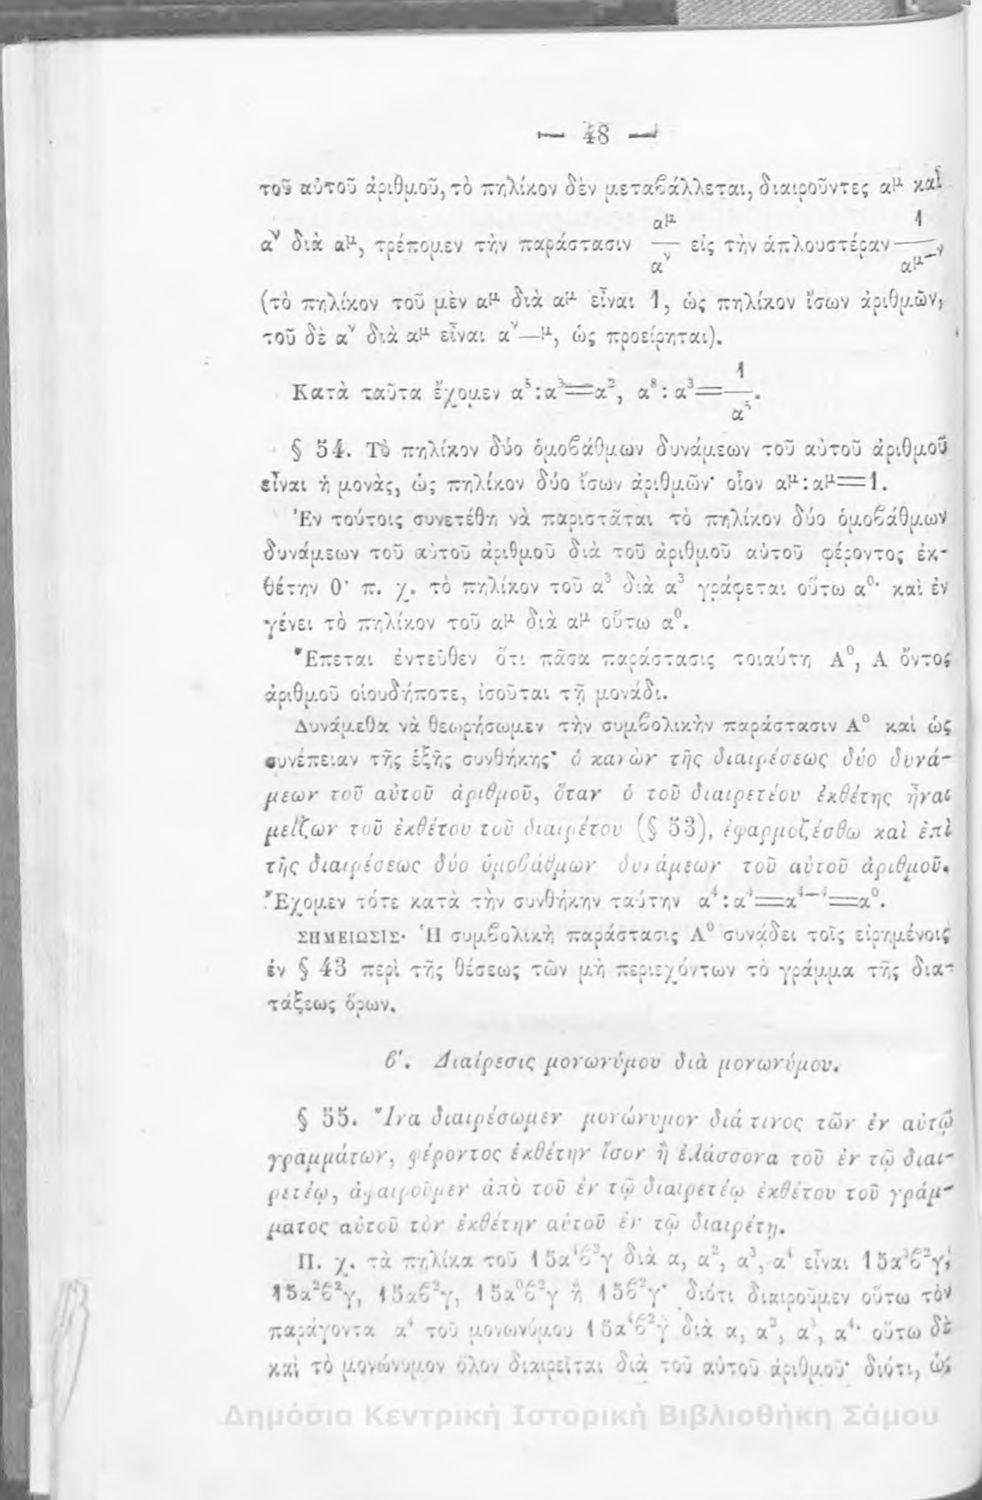 — 48 —
τοῦ αὐτοῦ ἀριθμοῦ, τὸ πηλίκον δὲν μεταβάλλεται, διαιροῦντες αᵘ καὶ
αᵛ διὰ αᵘ, τρέπομεν τὴν παράστασιν αᵘ/αᵛ εἰς τὴν ἁπλουστέραν 1/αᵘ⁻ᵛ
(τὸ πηλίκον τοῦ μὲν αᵘ διὰ αᵘ εἶναι 1, ὡς πηλίκον ἴσων ἀριθμῶν,
τοῦ δὲ αᵛ διὰ αᵘ εἶναι αᵛ—ᵘ, ὡς προείρηται).
Κατὰ ταῦτα ἔχομεν α⁵:α³=α², α⁸:α³=1/α⁵.
§ 54. Τὸ πηλίκον δύο ὁμοβάθμων δυνάμεων τοῦ αὐτοῦ ἀριθμοῦ
εἶναι ἡ μονὰς, ὡς πηλίκον δύο ἴσων ἀριθμῶν· οἷον αᵘ:αᵘ=1.
Ἐν τούτοις συνετέθη νὰ παριστᾶται τὸ πηλίκον δύο ὁμοβάθμων
δυνάμεων τοῦ αὐτοῦ ἀριθμοῦ διὰ τοῦ ἀριθμοῦ αὐτοῦ φέροντος ἐκ-
θέτην 0· π. χ. τὸ πηλίκον τοῦ α³ διὰ α³ γράφεται οὕτω α⁰· καὶ ἐν
γένει τὸ πηλίκον τοῦ αᵘ διὰ αᵘ οὕτω α⁰.
Ἕπεται ἐντεῦθεν ὅτι πᾶσα παράστασις τοιαύτη Α⁰, Α ὄντος
ἀριθμοῦ οἱουδήποτε, ἰσοῦται τῇ μονάδι.
Δυνάμεθα νὰ θεωρήσωμεν τὴν συμβολικὴν παράστασιν Α⁰ καὶ ὡς
συνέπειαν τῆς ἑξῆς συνθήκης· ὁ κανὼν τῆς διαιρέσεως δύο δυνά-
μεων τοῦ αὐτοῦ ἀριθμοῦ, ὅταν ὁ τοῦ διαιρετέου ἐκθέτης ἦναι
μείζων τοῦ ἐκθέτου τοῦ διαιρέτου (§ 53), ἐφαρμοζέσθω καὶ ἐπὶ
τῆς διαιρέσεως δύο ὁμοβάθμων δυνάμεων τοῦ αὐτοῦ ἀριθμοῦ.
Ἔχομεν τότε κατὰ τὴν συνθήκην ταύτην α⁴:α⁴=α⁴⁻⁴=α⁰.
ΣΗΜΕΙΩΣΙΣ· Ἡ συμβολικὴ παράστασις Α⁰ συνᾴδει τοῖς εἰρημένοις
ἐν § 43 περὶ τῆς θέσεως τῶν μὴ περιεχόντων τὸ γράμμα τῆς δια-
τάξεως ὅρων.
β'. Διαίρεσις μονωνύμου διὰ μονωνύμου.
§ 55. Ἵνα διαιρέσωμεν μονώνυμον διά τινος τῶν ἐν αὐτῷ
γραμμάτων, φέροντος ἐκθέτην ἴσον ἢ ἐλάσσονα τοῦ ἐν τῷ διαι-
ρετέῳ, ἀφαιροῦμεν ἀπὸ τοῦ ἐν τῷ διαιρετέῳ ἐκθέτου τοῦ γράμ-
ματος αὐτοῦ τὸν ἐκθέτην αὐτοῦ ἐν τῷ διαιρέτῃ.
Π. χ. τὰ πηλίκα τοῦ 15α⁴β²γ διὰ α, α², α³, α⁴ εἶναι 15α³β²γ,
15α²β²γ, 15αβ²γ, 15α⁰β²γ ἢ 15β²γ· διότι διαιροῦμεν οὕτω τὸν
παράγοντα α⁴ τοῦ μονωνύμου 15α⁴β²γ διὰ α, α², α³, α⁴· οὕτω δὲ
καὶ τὸ μονώνυμον ὅλον διαιρεῖται διὰ τοῦ αὐτοῦ ἀριθμοῦ· διότι, ὡς
Δημόσια Κεντρική Ιστορική Βιβλιοθήκη Σάμου